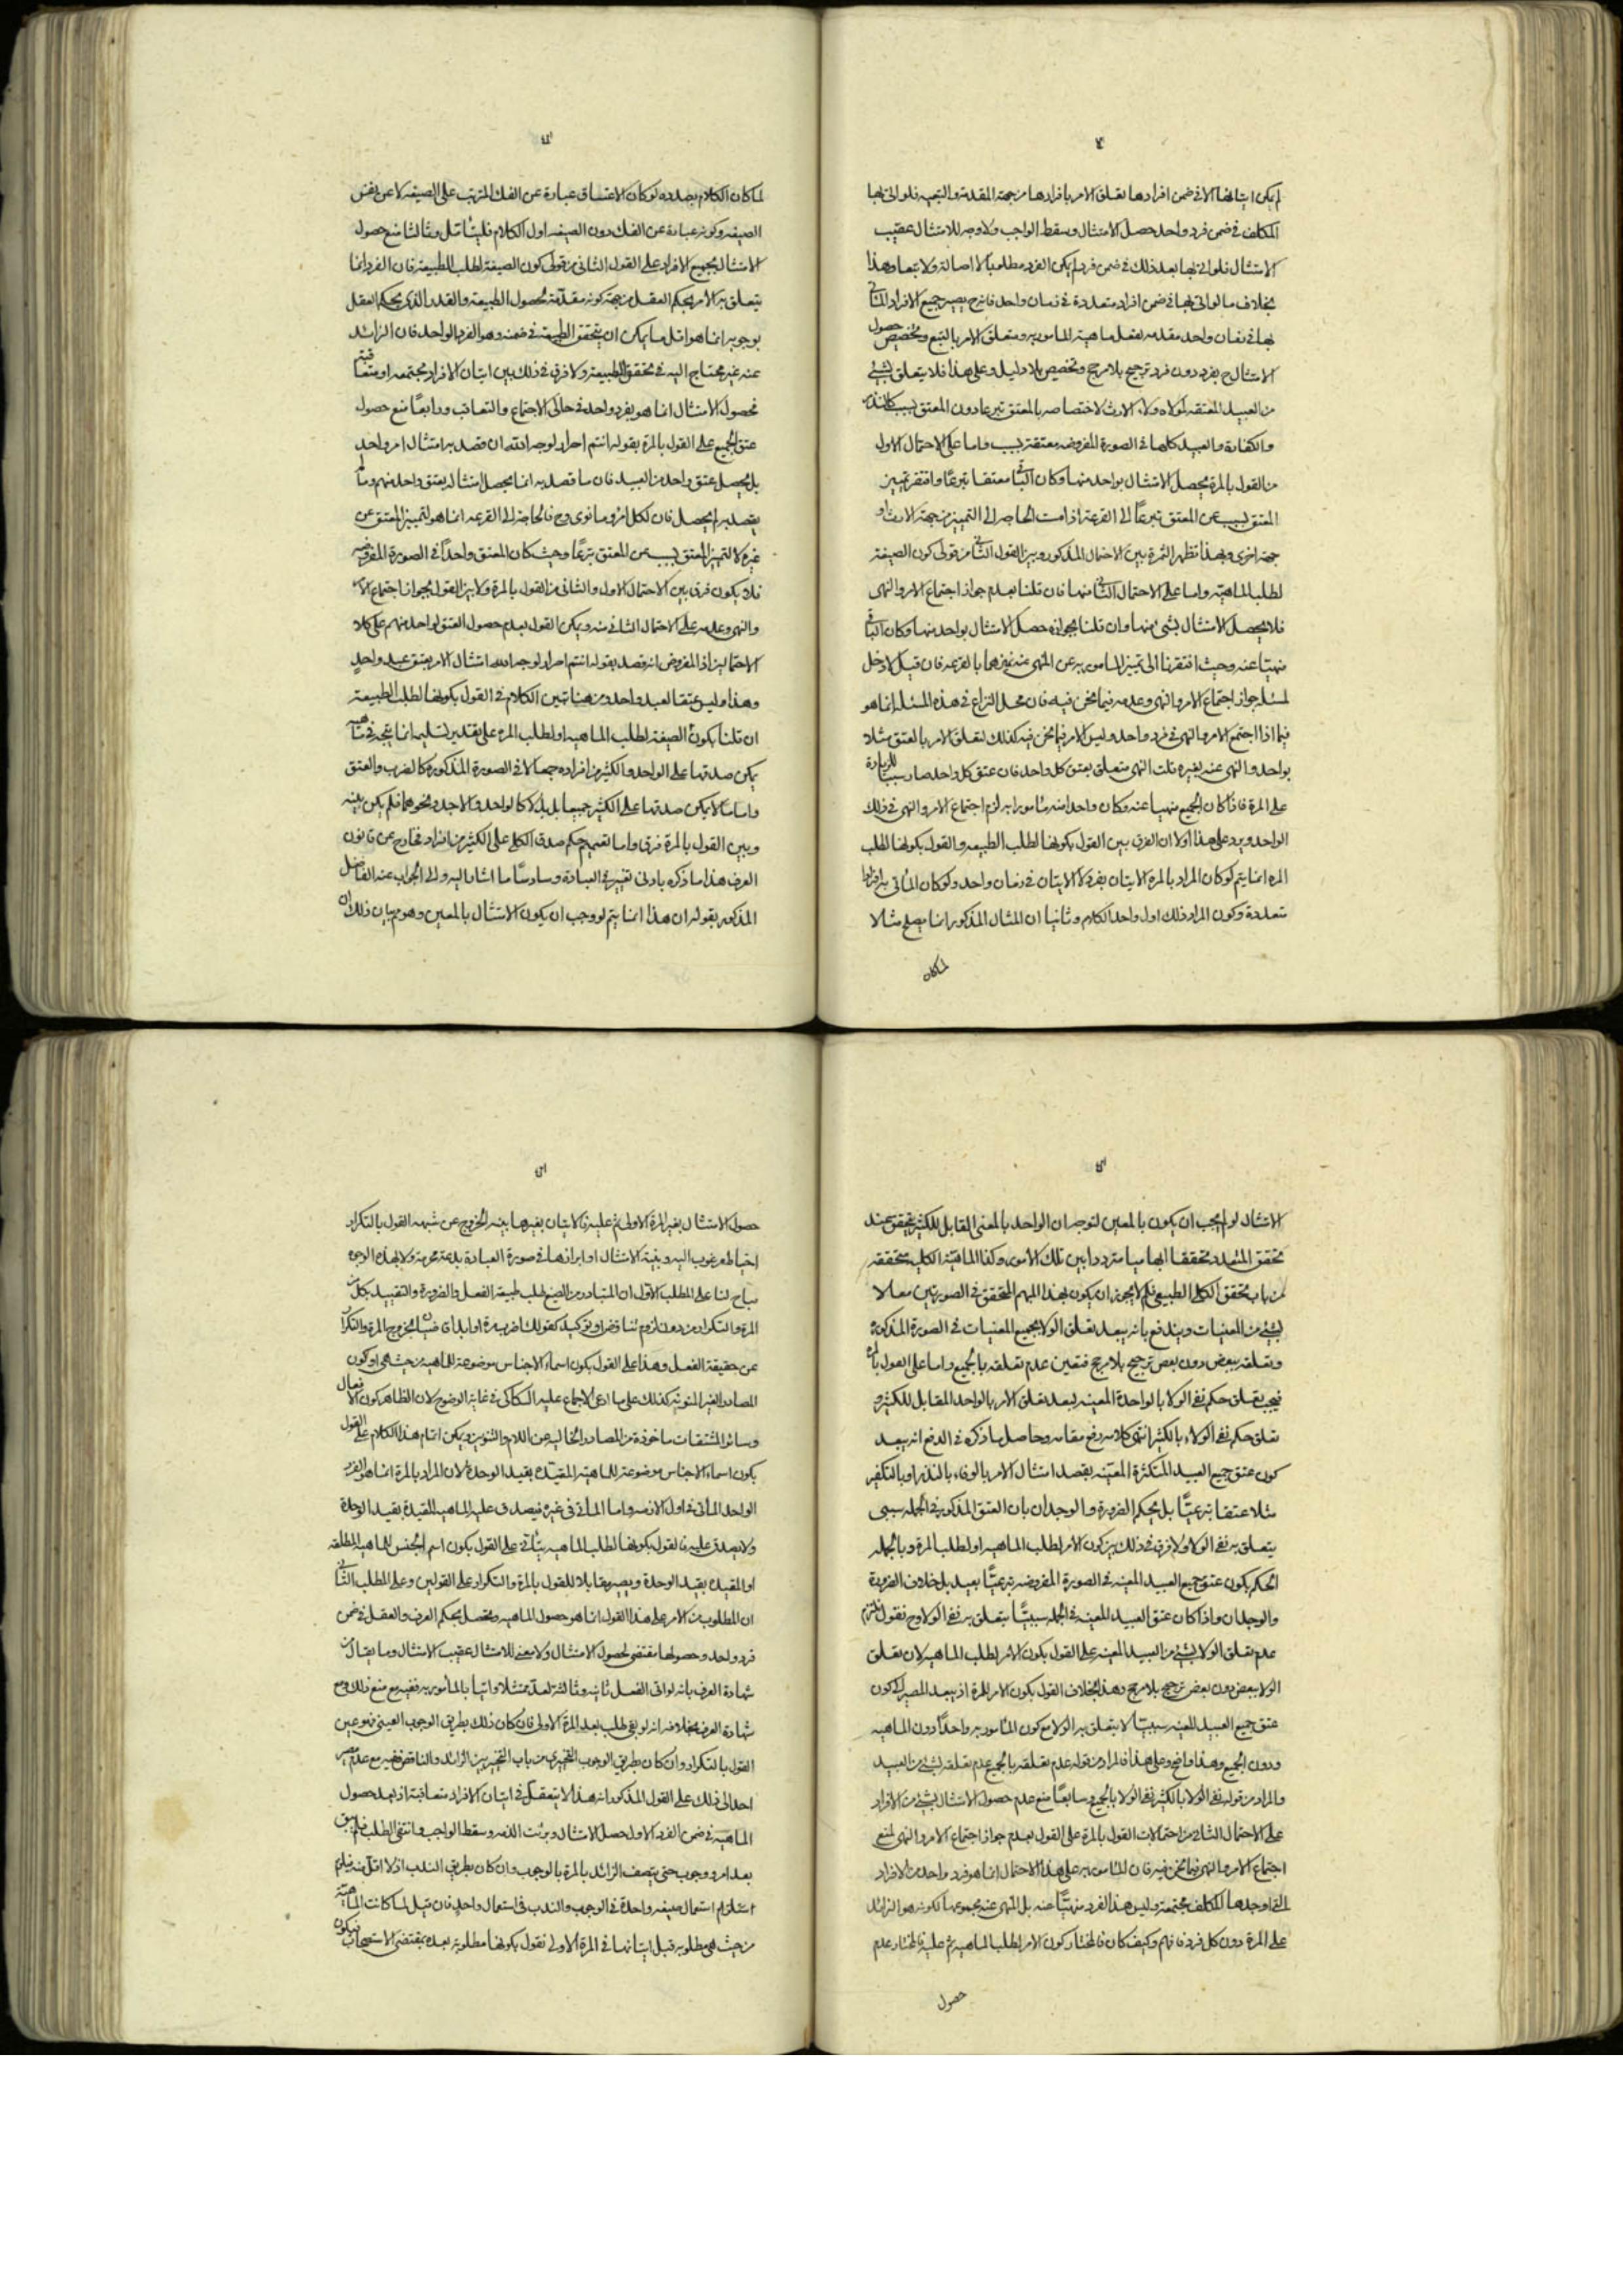 لم يكن اتيانها الا في ضمن افرادها تعلق الامر بافرادها من جهة المقدمة والتبعيه فلو اتى بها
المكلف في ضمن فرد واحد حصل الامتثال وسقط الواجب ولا وجه للامتثال عقيب
الامتثال فلو اتى بها بعد ذلك في ضمن فرد لم يكن الفرد مطلوبا لا اصالة ولا تبعا وهذا
بخلاف ما لو اتى بها في ضمن افراد متعددة في زمان واحد فانه ح يصير جميع الافراد
بها في زمان واحد مقدمه لفعل ماهية المامور به ومتعلق الامر بالتبع وتخصيص حصول
الامتثال ح بفرد دون فرد ترجيح بلا مرجح وتخصيص بلا دليل وعلى هذا فلا يتعلق بشئ
من العبيد المعتقه لمولاه ولاء الارث لاختصاصه بالمعتق تبرعا دون المعتق بسبب كالنذر
والكفارة والعبيد كلها في الصورة المفروضه معتقة بسبب واما على الاحتمال الاول
من القول بالمرة يحصل الامتثال بواحد منها وكان الباقي معتقا تبرعا وافتقر تمييز
المعتق بسبب عن المعتق تبرعا الى القرعة اذا مست الحاجه الى التمييز من جهة الارث او
جهة اخرى وبهذا تظهر الثمرة بين الاحتمال المذكور وبين القول الثانى من قولى كون الصيغة
لطلب الماهية واما على الاحتمال الثانى منها فان قلنا بعدم جواز اجتماع الامر والنهى
فلا يحصل الامتثال بشئ منها وان قلنا بجوازه حصل الامتثال بواحد منها وكان الباقي
منهيا عنه وحيث افتقرنا الى تمييز المامور به عن المنهى عنه نميزهما بالقرعه فان قيل لا دخل
لمسئلة جواز اجتماع الامر والنهى وعدمه فيما نحن فيه فان محل النزاع في هذه المسئلة انما هو
فيما اذا اجتمع الامر والنهى في فرد واحد وليس الامر فيما نحن فيه كذلك لتعلق الامر بالعتق مثلا
بواحد والنهى عنه بغيره قلت النهى متعلق بعتق كل واحد فان عتق كل واحد صار سببا للزيادة
على المرة فاذا كان الجميع منهيا عنه وكان واحد منه مامورا به لزم اجتماع الامر والنهى في ذلك
الواحد ويرد على هذا اولا ان الفرق بين القول بكونها لطلب الطبيعه والقول بكونها لطلب
المره انما يتم لو كان المراد بالمرة الاتيان بفرد لا الاتيان في زمان واحد ولو كان الماتى به افرادا
متعددة وكون المراد ذلك اول واحد الكلام وثانيا ان المثال المذكور انما يصلح مثالا
لما كان
لما كان الكلام بصدده لو كان الاعتاق عبارة عن الفك المترتب على الصيغه لا عن نفس
الصيغه وكونه عبارة عن الفك دون الصيغه اول الكلام فليتامل وثالثا منع حصول
الامتثال بجميع الافراد على القول الثانى من قولى كون الصيغة لطلب الطبيعة فان الفرد انما
يتعلق به الامر بحكم العقل من جهة كونه مقدمة لحصول الطبيعة والقدر الذى يحكم العقل
بوجوبه انما هو اقل ما يمكن ان يتحقق الطبيعة في ضمنه وهو الفرد الواحد فان الزائد
عنه غير محتاج اليه في تحقق الطبيعة ولا فرق في ذلك بين اتيان الافراد مجتمعه او متعاقبة
فحصول الامتثال انما هو بفرد واحد في حالتى الاجتماع والتعاقب ورابعا منع حصول
عتق الجميع على القول بالمرة بقوله انتم احرار لوجه الله ان قصد به امتثال امر واحد
بل يحصل عتق واحد من العبيد فان ما قصد به انما يحصل امتثاله بعتق واحد منهم وما لم
يقصد به لم يحصل فان لكل امرء ما نوى وح فالحاجة الى القرعه انما هو لتمييز المعتق عن
غيره لا لتمييز المعتق بسبب عن المعتق تبرعا وحيث كان المعتق واحدا في الصورة المفروضه
فلا يكون فرق بين الاحتمال الاول والثانى من القول بالمرة ولا بين القول بجواز اجتماع الامر
والنهى وعدمه على الاحتمال الثانى منه ويمكن القول بعدم حصول العتق لواحد منهم على كلا
الاحتمالين اذ المفروض انه قصد بقوله انتم احرار لوجه الله امتثال الامر بعتق عبد واحد
وهذا وليس عتقا لعبد واحد ومن هنا تبين الكلام في القول بكونها لطلب الطبيعة
ان قلنا بكون الصيغة لطلب الماهيه او لطلب المره على تقدير تسليمه انما يتجه في ماهية
يمكن صدقها على الواحد والكثير من افراده جمعا لا في الصورة المذكورة كالضرب والعتق
واما ما لا يمكن صدقها على الكثير جميعا بل بدلا كالواحد والاحد ونحوهما فلم يكن بينه
وبين القول بالمرة فرق واما تعميم حكم صدق الكلى على الكثير من افراد فخارج عن قانون
العرف هذا ما ذكره بادنى تغيير في العبارة وسادسا ما اشار اليه والى الجواب عنه الفاضل
المذكور بقوله ان هذا انما يتم لو وجب ان يكون الامتثال بالمعين وهو مم بيان ذلك ان
الامتثال لو لم يجب ان يكون بالمعين لتوجه ان الواحد بالمعنى القابل للكثير يتحقق عند
تحقق المتعدد تحققا ابهاميا مترددا بين تلك الامور وكذا الماهية الكلية متحققه
من باب تحقق الكلى الطبيعى فلم لا يجوز ان يكون بهذا المبهم المتحقق في الصورتين معا لا
بشئ من المعينات ويندفع بانه يبعد تعلق الولا بجميع المعينات في الصورة المذكورة
وتعلقه ببعض دون بعض ترجيح بلا مرجح فتعين عدم تعلقه بالجميع واما على القول بالمرة
فيجب تعلق حكم نفى الولا بالواحدة المعينه لبعد تعلق الامر بالواحد المقابل للكثير و
تعلق حكم نفى الولاء بالكثير انتهى كلامه رفع مقامه وحاصل ما ذكره في الدفع انه يبعد
كون عتق جميع العبيد المتكثرة المعينه بقصد امتثال الامر بالوفاء بالنذر او بالتكفير
مثلا عتقا تبرعيا بل يحكم الضرورة والوجدان بان العتق المذكور في الجمله سببى
يتعلق به نفى الولا ولا فرق في ذلك بين كون الامر لطلب الماهيه او لطلب المرة وبالجمله
الحكم بكون عتق جميع العبيد المعينه في الصورة المفروضه تبرعيا بعيد بل خلاف الضرورة
والوجدان واذا كان عتق العبيد المعينه في الجمله سببيا يتعلق به نفى الولا وح نقول نلتزم
عدم تعلق الولا بشئ من العبيد المعينه على القول بكون الامر لطلب الماهيه لان تعلق
الولا ببعض دون بعض ترجيح بلا مرجح وهذا بخلاف القول بكون الامر للمرة اذ يبعد المصير الى كون
عتق جميع العبيد المعينه سببيا لا يتعلق به الولا مع كون المامور به واحدا دون الماهيه
ودون الجميع وهذا واضح وعلى هذا فالمراد من قوله عدم تعلقه بالجميع عدم تعلقه بشئ من العبيد
والمراد من قوله نفى الولا بالكثير نفى الولا بالجميع وسابعا منع عدم حصول الامتثال بشئ من الافراد
على الاحتمال الثانى من احتمالات القول بالمرة على القول بعدم جواز اجتماع الامر والنهى لمنع
اجتماع الامر والنهى فيما نحن فيه فان المامور به على هذا الاحتمال انما هو فرد واحد من الافراد
التى اوجدها المكلف مجتمعة وليس هذا الفرد منهيا عنه بل المنهى عنه مجموعها لكونه هو الزائد
على المرة دون كل فرد فافهم وكيف كان فالمختار كون الامر لطلب الماهيه ثم عليه فالمختار عدم
حصول
حصول الامتثال بغير المرة الاولى ثم عليه فالاتيان بغيرها بنيه الخروج عن شبهه القول بالتكرار
احتياط مرغوب اليه وبنية الامتثال او ابرازها في صورة العبادة بدعة محرمة ولا بهذه الوجوه
مباح لنا على المطلب الاول ان المتبادر من الصيغ طلب طبيعة الفعل والضرورة والتقييد بكل من
المرة والتكرار من دون لزوم تناقض او توكيد كقولك اضرب مرة او ابدا فان ضربا لخروج المرة والتكرار
عن حقيقة الفعل وهذا على القول بكون اسماء الاجناس موضوعة للماهيه من حيث هى او كون
المصادر الغير المنونه كذلك على ما ادعى الاجماع عليه السكاكى في غاية الوضوح لان الظاهر كون الافعال
وسائر المشتقات ماخوذة من المصادر الخاليه عن اللام والتنوين ويمكن اتمام هذا الكلام على القول
بكون اسماء الاجناس موضوعة للماهية المقيده بقيد الوحدة لان المراد بالمرة انما هو الفرد
الواحد الماتى في اول الازمنه واما الماتى في غيره فيصدق عليه الماهيه المقيدة بقيد الوحدة
ولا يصدق عليه فالقول بكونها لطلب الماهيه يتاتى على القول بكون اسم الجنس للماهيه المطلقه
او المقيده بقيد الوحدة ويصير مقابلا للقول بالمرة والتكرار على القولين وعلى المطلب الثانى
ان المطلوب من الامر على هذا القول انما هو حصول الماهيه وتحصل بحكم العرف والعقل في ضمن
فرد واحد وحصولها مقتضى لحصول الامتثال ولا معنى للامتثال عقيب الامتثال وما يقال من
شهادة العرف بانه لو اتى الفعل ثانيه وثالثة لعد ممتثلا واتيا بالمامور به ففيه مع منع ذلك ومع
شهادة العرف بخلافه انه لو بقى طلب بعد المرة الاولى فان كان ذلك بطريق الوجوب العينى فهو عين
القول بالتكرار وان كان بطريق الوجوب التخييرى من باب التخيير بين الزائد والناقص ففيه مع عدم مصير
احد الى ذلك على القول المذكور انه هذا لا يتعقل في اتيان الافراد متعاقبة اذ بعد حصول
الماهيه في ضمن الفرد الاول حصل الامتثال وبرئت الذمه وسقط الواجب وانتفى الطلب فلم يبق
بعد امر ووجوب حتى يتصف الزائد بالمرة بالوجوب وان كان بطريق الندب اذ لا اقل منه فيلزم
استلزام استعمال صيغه واحدة في الوجوب والندب في استعمال واحد فان قيل لما كانت الماهية
من حيث هى مطلوبه قبل اتيانها في المرة الاولى نقول بكونها مطلوبة بعده بمقتضى الاستصحاب فيكون